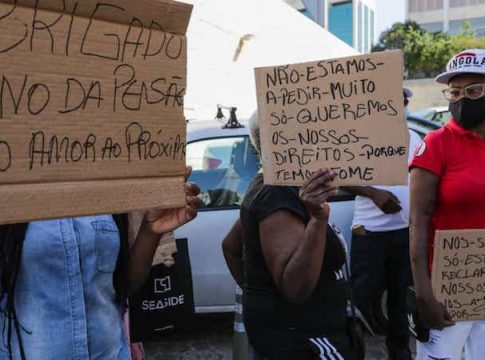 BRIGADO
NO DA PENSÃO
O AMOR AO PRÓXIM
NÃO-ESTAMOS-
A-PEDIR-MUITO
SÓ-QUEREMOS
OS-NOSSOS-
DIREITOS-PORQUE
TEMOS FOME
ANGOLA
SEASIDE
NOS-
SÓ-EST
RECLAR
NOSSOS